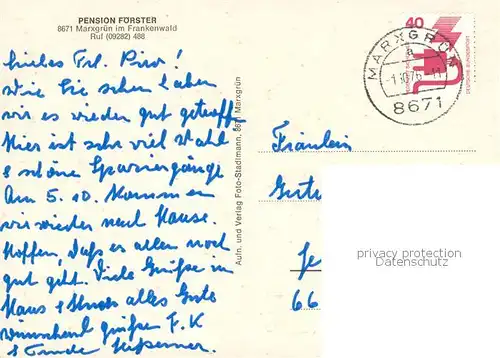 PENSION FORSTER
8671 Marxgrün im Frankenwald
Ruf (09282) 488
liebes Frl. Piro!
Wie Sie sehen haben
wir es wieder gut getroffen
Hier ist sehr viel Wald
& schöne Spaziergänge
Am 5.10. kommen
wir wieder nach Hause.
Hoffen, daß es allen noch
gut geht. Viele Grüße im
Haus & Ihnen alles Gute
wünschend grüßen F. K
Aufn. und Verlag Foto-Stadlmann, 8671 Marxgrün
40
DEUTSCHE BUNDESPOST
MARXGRÜN
a
-1.10.76-11
8671
Fräulein
Gute
Je
66
privacy protection
Datenschutz